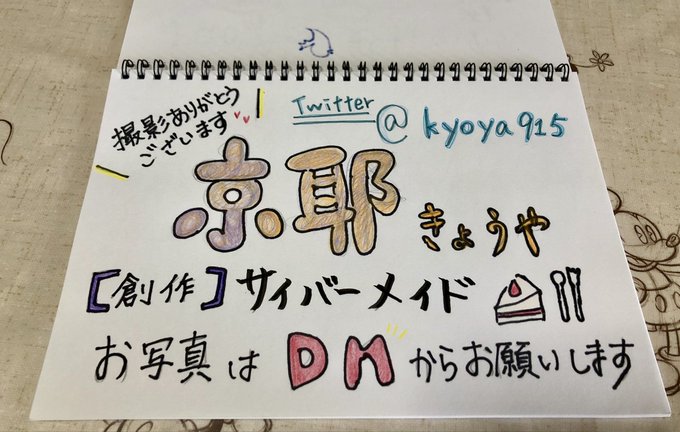 撮影ありがとう
ございます
Twitter
@kyoya915
京耶 きょうや
[創作] サイバーメイド
お写真は DM からお願いします